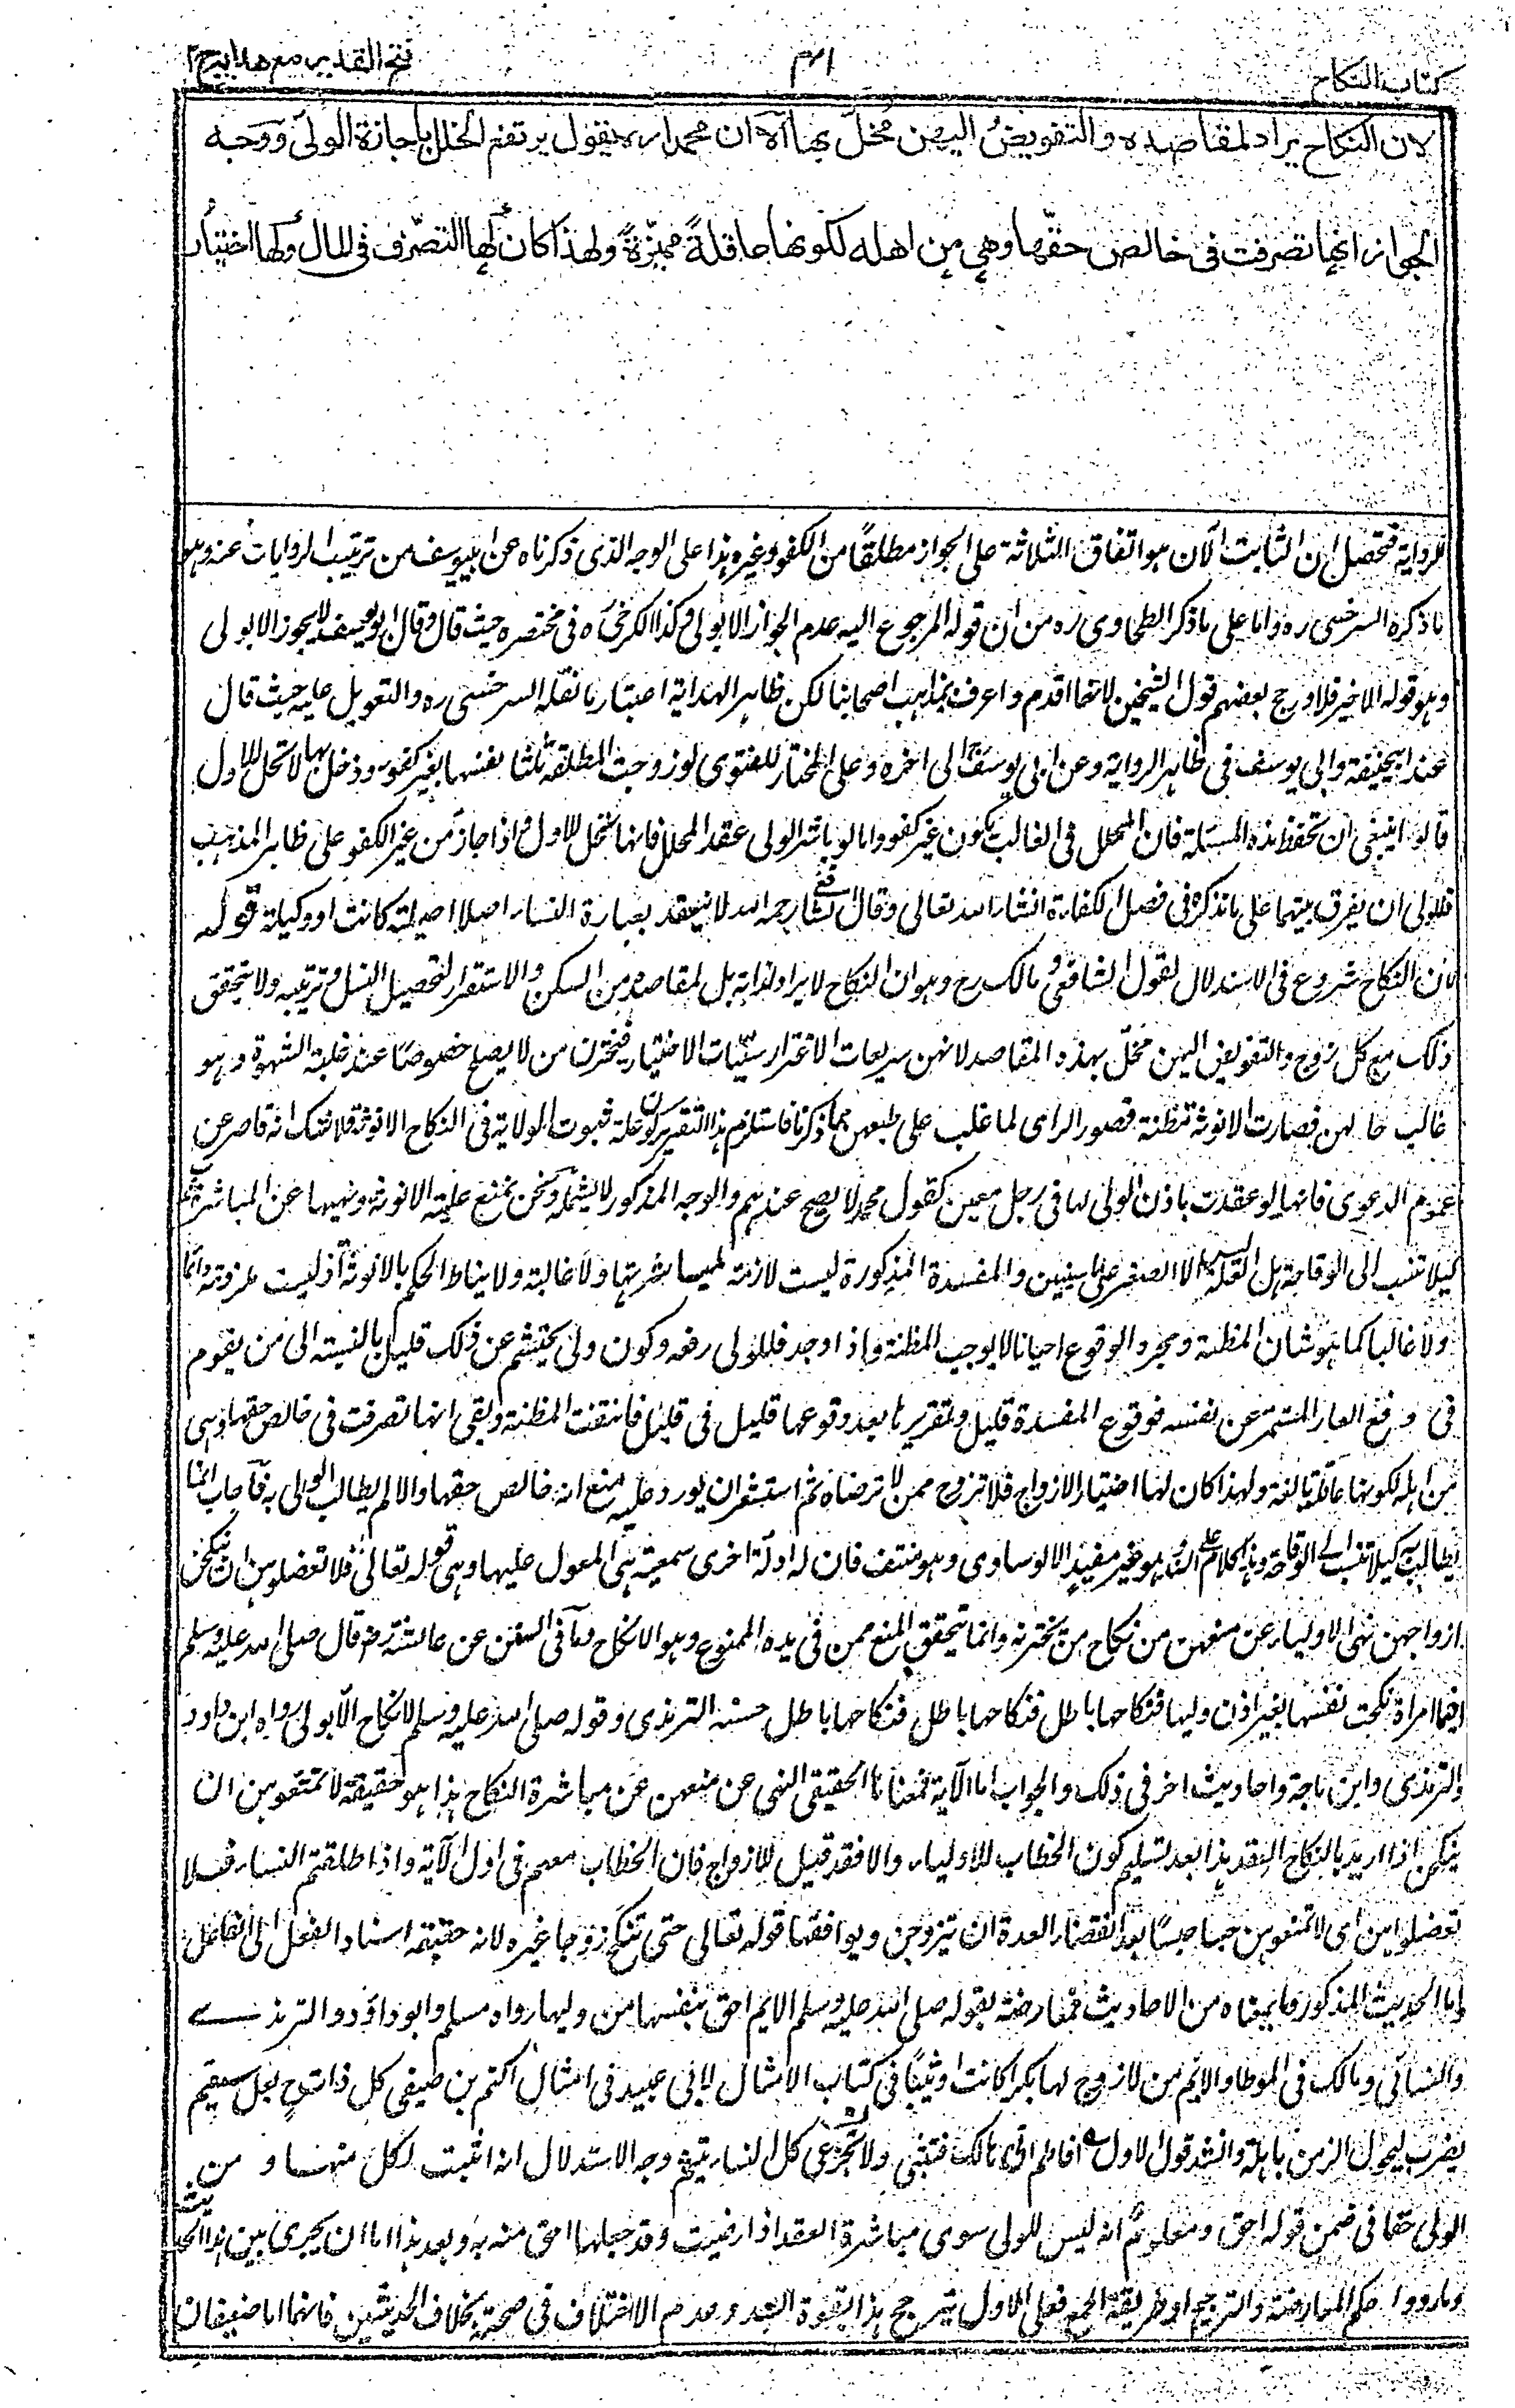 كتاب النكاح
فتح القدير مع هدايه ج ٢
لان النكاح يراد لمقاصده والتفويضُ اليهن مُخلّ بها الا ان محمدا ره يقول يرتفع الخلل باجازة الولى ووجه
الجواز انها تصرفت فى خالص حقّها وهى مِن اهله لكونها عاقلةً مميّزةً ولهذا كان لها التصرّف فى المال ولها اختيار
الرواية فتحصل ان الثابت الآن هو اتفاق الثلاثة على الجواز مطلقًا من الكفو وغيره هذا على الوجه الذى ذكرناه عن ابيوسف من ترتيب الروايات عنه وهو
ما ذكره السرخسى ره واما على ما ذكر الطحاوى ره من ان قوله المرجوع اليه عدم الجواز الا بولى وكذا الكرخى ره فى مختصره حيث قال وقال ابو يوسف لا يجوز الا بولى
وهو قوله الاخير فلا ورجح بعضهم قول الشيخين لانهما اقدم واعرف بمذاهب اصحابنا لكن ظاهر الهداية اعتبار ما نقله السرخسى ره والتعويل عليه حيث قال
عند ابيحنيفة وابى يوسف فى ظاهر الرواية وعن ابى يوسف الى اخره وعلى المختار للفتوى لو زوجت المطلقة ثلثا نفسها بغير كفو ودخل بها لا تحل للاول
قالوا ينبغى ان تحفظ هذه المسئلة فان المحلل فى الغالب يكون غير كفو واما لو باشر الولى عقد المحلل فانها تحل للاول واذا جاز من غير الكفو على ظاهر المذهب
فللولى ان يفرق بينهما على ما نذكره فى فصل الكفاءة انشاء الله تعالى وقال الشافعى رحمه الله لا ينعقد بعبارة النساء اصلا اصيلة كانت او وكيلة قوله
لان النكاح شروع فى الاستدلال لقول الشافعى ومالك رح وهو ان النكاح لا يراد لذاته بل لمقاصده من السكن والاستقرار لتحصيل النسل وتربيته ولا يتحقق
ذلك مع كل زوج والتفويض اليهن مخلّ بهذه المقاصد لانهن سريعات الاغترار سيّئات الاختيار فيخترن من لا يصلح خصوصًا عند غلبة الشهوة وهو
غالب حالهن فصارت الانوثة مظنة قصور الراى لما غلب على طبعهن مما ذكرنا فاستلزم هذا التقرير كون علة ثبوت الولاية فى النكاح الانوثة فلا شك انه قاصر عن
عموم الدعوى فانها لو عقدت باذن الولى لها فى رجل معين كقول محمد لا يصح عندهم والوجه المذكور لا يشمله ونحن نمنع علية الانوثة ونهيها عن المباشرة
كيلا تنسب الى الوقاحة بل العلة ليس الا الصغر على ما سنبين والمفسدة المذكورة ليست لازمة لمباشرتها ولا غالبة ولا يناط الحكم بالانوثة اذ ليست ملزومة دائما
ولا غالبا كما هو شان المظنة ومجرد الوقوع احيانا لا يوجب المظنة واذا وجد فللولى رفعه وكون ولى يحتشم عن ذلك قليل بالنسبة الى من يقوم
فى دفع العار المستمر عن نفسه فوقوع المفسدة قليل وتقريرها بعد وقوعها قليل فى قليل فانتفت المظنة وبقى انها تصرفت فى خالص حقها وهى
من اهله لكونها عاقلة بالغة ولهذا كان لها اختيار الازواج فلا تزوج ممن لا ترضاه ثم استشعر ان يورد عليه منع انه خالص حقها والا لم يطالب الولى به فاجاب انما
يطالب به كيلا تنسب الى الوقاحة وهذا كلام على السند وهو غير مفيد الا لو ساوى وهو منتف فان له ادلة اخرى سمعية هى المعول عليها وهى قوله تعالى فلا تعضلوهن ان ينكحن
ازواجهن نهى الاولياء عن منعهن من نكاح من يخترنه وانما يتحقق المنع ممن فى يده الممنوع وهو الانكاح وما فى السنن عن عائشة رض قال صلى الله عليه وسلم
ايما امراة نكحت نفسها بغير اذن وليها فنكاحها باطل فنكاحها باطل فنكاحها باطل حسنه الترمذى وقوله صلى الله عليه وسلم لا نكاح الا بولى رواه ابن داود
والترمذى وابن ماجة واحاديث اخر فى ذلك والجواب اما الآية فمعناها الحقيقى النهى عن منعهن عن مباشرة النكاح هذا هو حقيقة لا تمنعوهن ان
ينكحن اذا اريد بالنكاح العقد هذا بعد تسليم كون الخطاب للاولياء والا فقد قيل للازواج فان الخطاب معهم فى اول الآية واذا طلقتم النساء فلا
تعضلوهن اى لا تمنعوهن حبسا بعد انقضاء العدة ان يتزوجن ويوافقها قوله تعالى حتى تنكح زوجا غيره لانه حقيقة اسناد الفعل الى الفاعل
واما الحديث المذكور وما بمعناه من الاحاديث فمعارضة بقوله صلى الله عليه وسلم الايم احق بنفسها من وليها رواه مسلم وابو داؤد والترمذى
والنسائى ومالك فى الموطا والايم من لا زوج لها بكرا كانت او ثيبًا فى كتاب الامثال لابى عبيد فى امثال اكثم بن صيفى كل ذات بعل ستئيم
يضرب لتحول الزمن باهله وانشد قول الاول افاطم انى هالك فتثبتى ولا تجزعى كل النساء يتيم وجه الاستدلال انه اثبت لكل منها ومن
الولى حقا فى ضمن قوله احق ومعلوم انه ليس للولى سوى مباشرة العقد اذا رضيت وقد جعلها احق منه به وبعد هذا اما ان يجرى بين هذا الحديث
وما رووا حكم المعارضة والترجيح او طريقة الجمع فعلى الاول يترجح هذا بقوة السند وعدم الاختلاف فى صحته بخلاف الحديثين فانهما اما ضعيفان